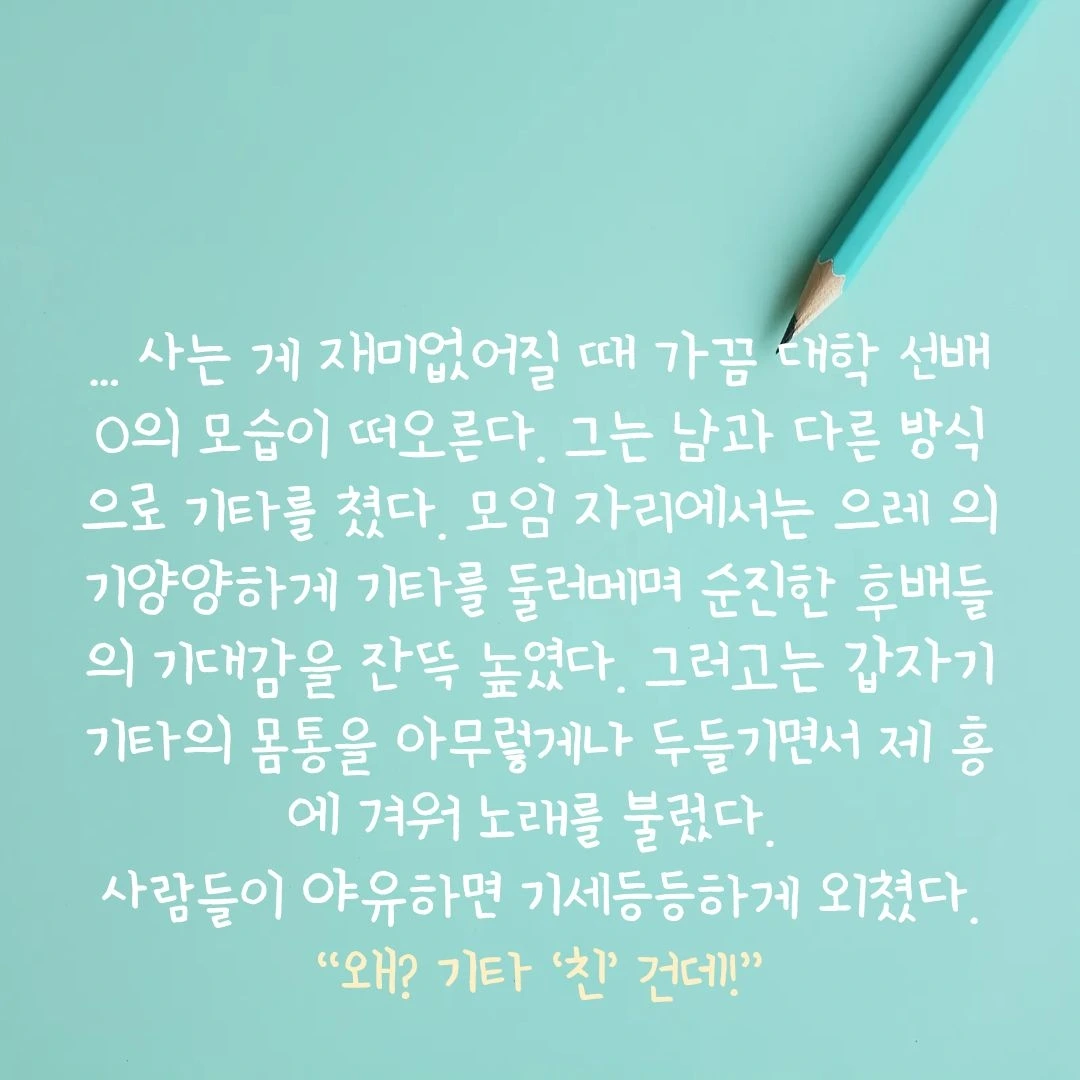 ... 사는 게 재미없어질 때 가끔 대학 선배
O의 모습이 떠오른다. 그는 남과 다른 방식
으로 기타를 쳤다. 모임 자리에서는 으레 의
기양양하게 기타를 둘러메며 순진한 후배들
의 기대감을 잔뜩 높였다. 그러고는 갑자기
기타의 몸통을 아무렇게나 두들기면서 제 흥
에 겨워 노래를 불렀다.
사람들이 야유하면 기세등등하게 외쳤다.
“왜? 기타 ‘친’ 건데!”